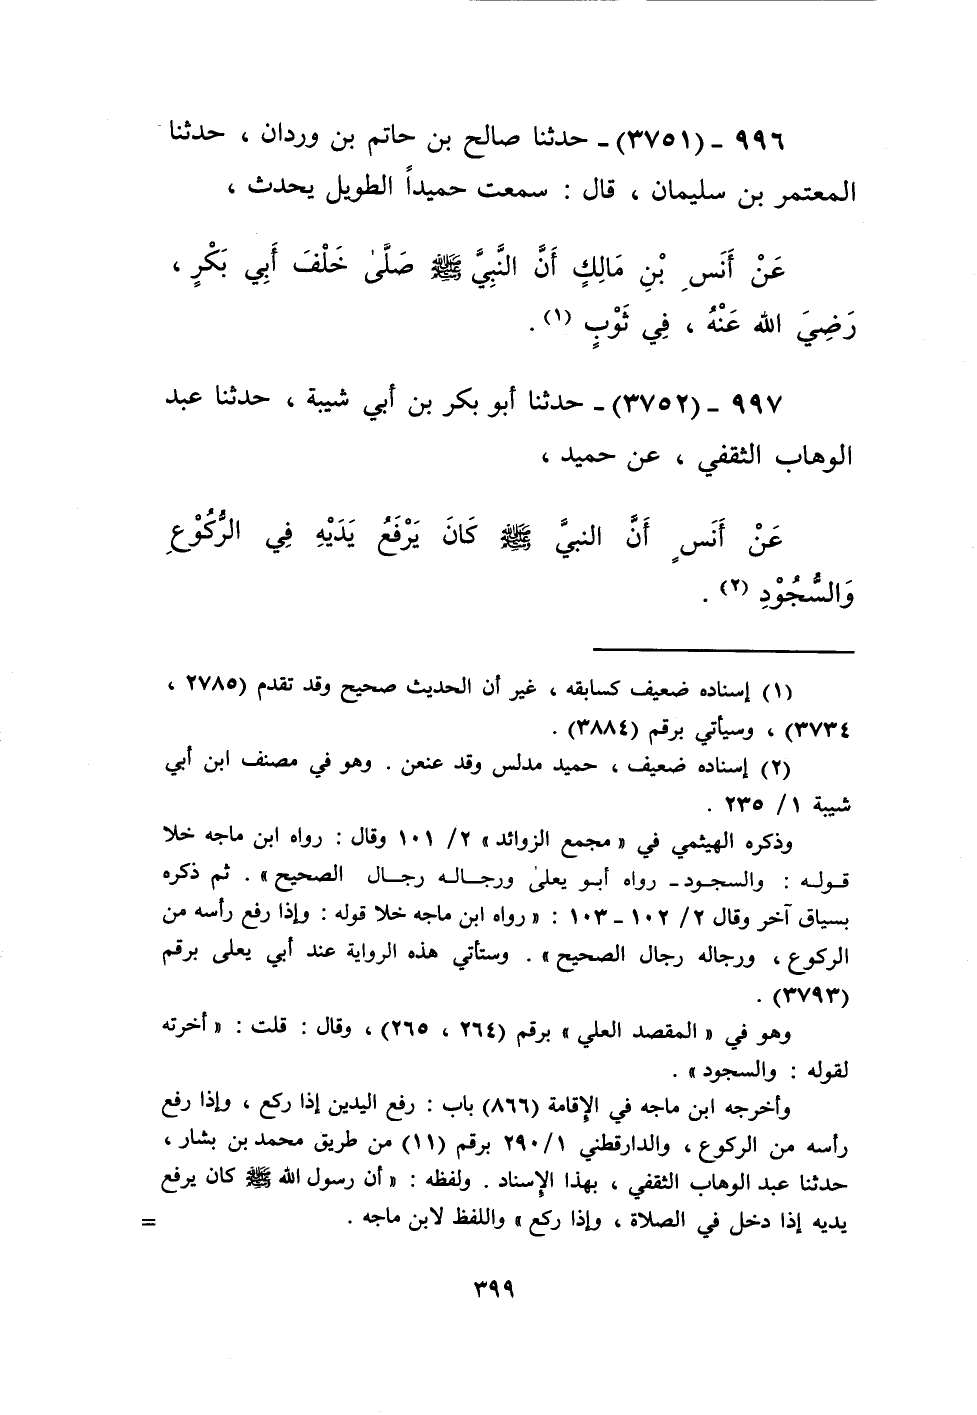 ٩٩٦ ـ (٣٧٥١) ـ حدثنا صالح بن حاتم بن وردان ، حدثنا
المعتمر بن سليمان ، قال : سمعت حميداً الطويل يحدث ،
عَنْ أَنَسِ بْنِ مَالِكٍ أَنَّ النَّبِيَّ ﷺ صَلَّىٰ خَلْفَ أَبِي بَكْرٍ ،
رَضِيَ الله عَنْهُ ، فِي ثَوْبٍ (١) .
٩٩٧ ـ (٣٧٥٢) ـ حدثنا أبو بكر بن أبي شيبة ، حدثنا عبد
الوهاب الثقفي ، عن حميد ،
عَنْ أَنَسٍ أَنَّ النبيَّ ﷺ كَانَ يَرْفَعُ يَدَيْهِ فِي الرُّكُوْعِ
وَالسُّجُوْدِ (٢) .
(١) إسناده ضعيف كسابقه ، غير أن الحديث صحيح وقد تقدم (٢٧٨٥ ،
٣٧٣٤) ، وسيأتي برقم (٣٨٨٤) .
(٢) إسناده ضعيف ، حميد مدلس وقد عنعن . وهو في مصنف ابن أبي
شيبة ١/ ٢٣٥ .
وذكره الهيثمي في « مجمع الزوائد » ٢/ ١٠١ وقال : رواه ابن ماجه خلا
قوله : والسجود ـ رواه أبو يعلىٰ ورجاله رجال الصحيح » . ثم ذكره
بسياق آخر وقال ٢/ ١٠٢ ـ ١٠٣ : « رواه ابن ماجه خلا قوله : وإذا رفع رأسه من
الركوع ، ورجاله رجال الصحيح » . وستأتي هذه الرواية عند أبي يعلى برقم
(٣٧٩٣) .
وهو في « المقصد العلي » برقم (٢٦٤ ، ٢٦٥) ، وقال : قلت : « أخرته
لقوله : والسجود » .
وأخرجه ابن ماجه في الإقامة (٨٦٦) باب : رفع اليدين إذا ركع ، وإذا رفع
رأسه من الركوع ، والدارقطني ١/ ٢٩٠ برقم (١١) من طريق محمد بن بشار ،
حدثنا عبد الوهاب الثقفي ، بهذا الإسناد . ولفظه : « أن رسول الله ﷺ كان يرفع
يديه إذا دخل في الصلاة ، وإذا ركع » واللفظ لابن ماجه . =
٣٩٩